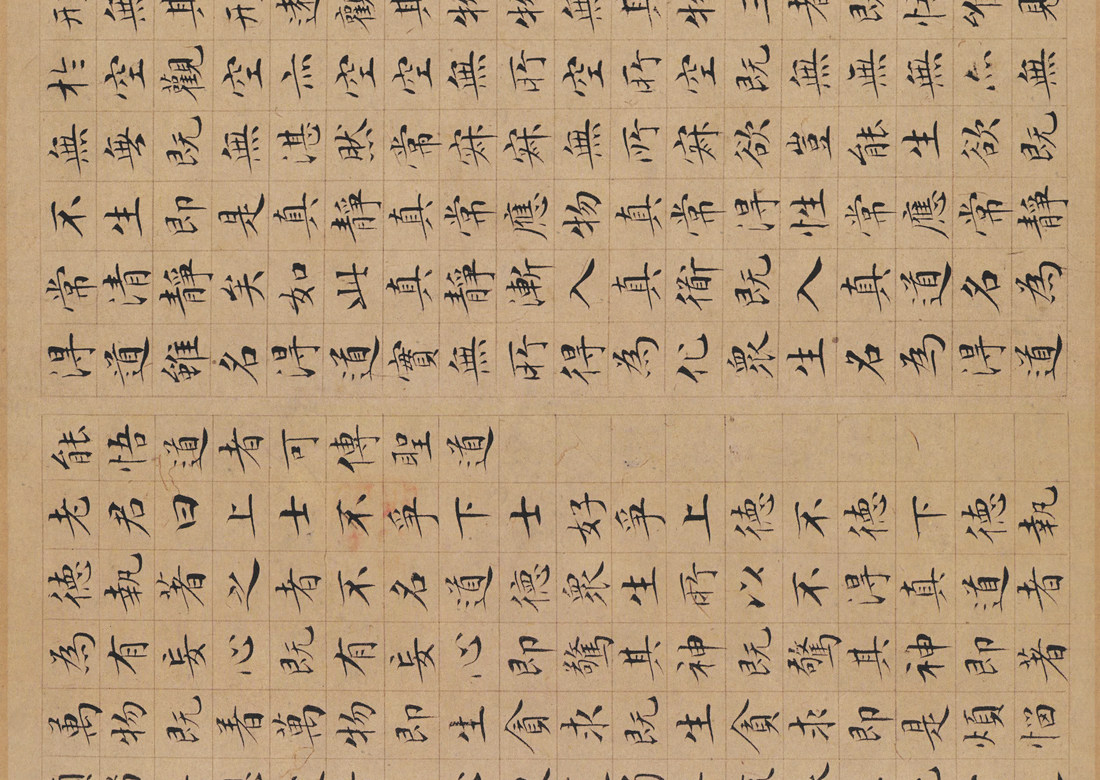 形無其形遠觀其物物無其物三者既悟唯見
於空觀空亦空空無所空所空既無無無亦無
無無既無湛然常寂寂無所寂欲豈能生欲既
不生即是真靜真常應物真常得性常應常靜
常清靜矣如此真靜漸入真道既入真道名為
得道雖名得道實無所得為化眾生名為得道
能悟道者可傳聖道
老君曰上士不爭下士好爭上德不德下德執
德執著之者不名道德眾生所以不得真道者
為有妄心既有妄心即驚其神既驚其神即著
萬物既著萬物即生貪求既生貪求即是煩惱